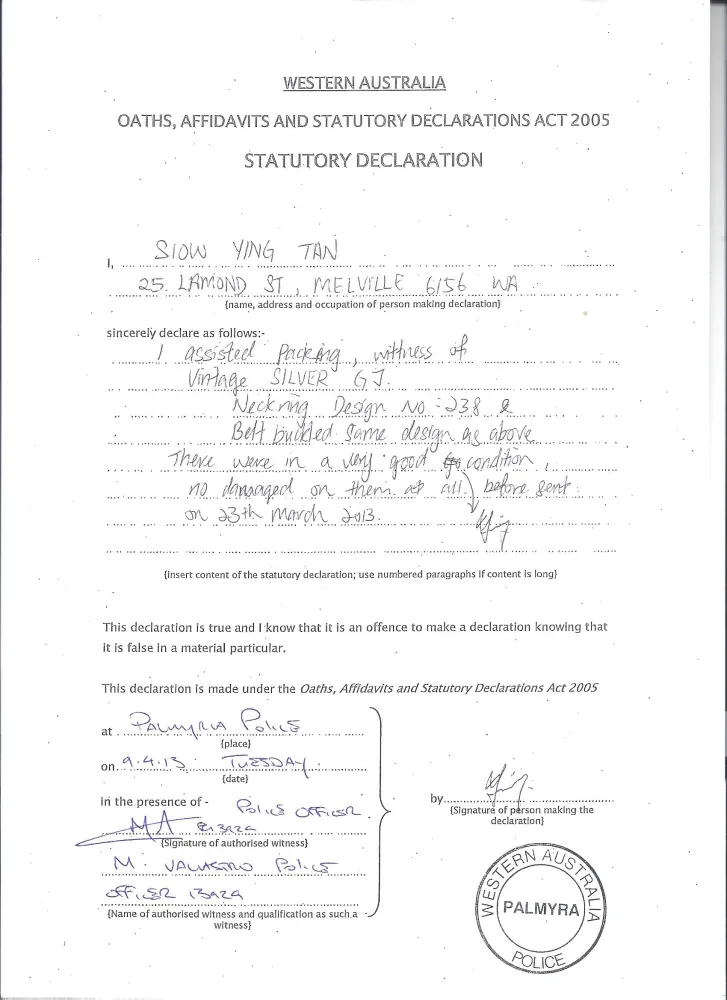 WESTERN AUSTRALIA
OATHS, AFFIDAVITS AND STATUTORY DECLARATIONS ACT 2005
STATUTORY DECLARATION
I, SIOW YING TAN
25. LAMOND ST, MELVILLE 6156 WA
{name, address and occupation of person making declaration}
sincerely declare as follows:-
I assisted Packing, wittness of
Vintage SILVER GJ.
Neckring Design No :238 &
Belt buckled same design as above
There were in a very good condition,
no damaged on them at all) before sent
on 23th March 2013.
{insert content of the statutory declaration; use numbered paragraphs if content is long}
This declaration is true and I know that it is an offence to make a declaration knowing that
it is false in a material particular.
This declaration is made under the Oaths, Affidavits and Statutory Declarations Act 2005
at PALMYRA POLICE
{place}
on 9.4.13 TUESDAY
{date}
in the presence of - POLICE OFFICER
{Signature of authorised witness}
M. Police
OFFICER 13929
{Name of authorised witness and qualification as such a
witness}
by
{Signature of person making the
declaration}
WESTERN AUSTRALIA
PALMYRA
POLICE